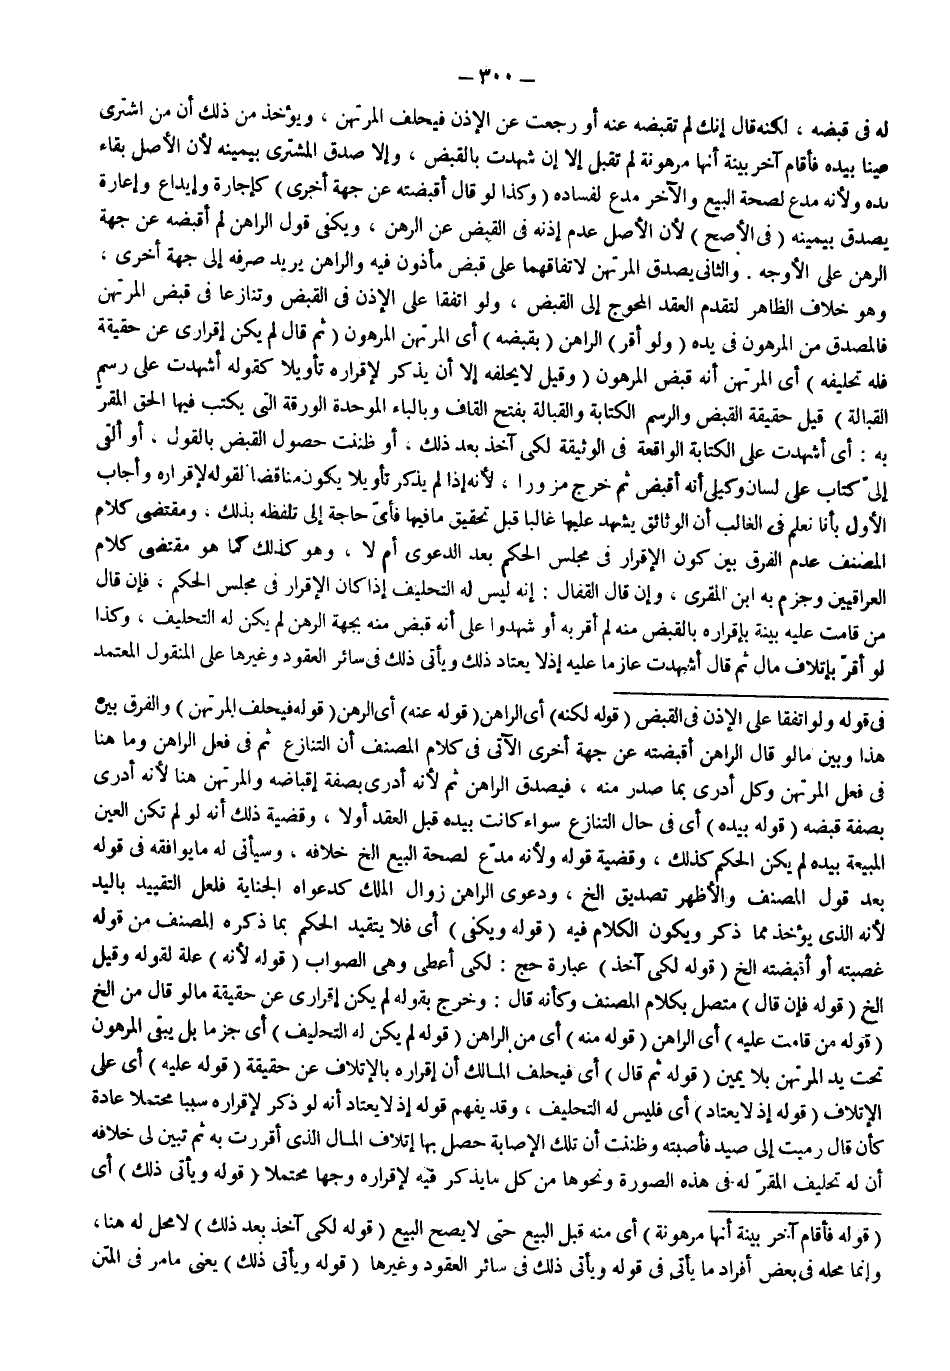 – ٣٠٠ –
له فى قبضه ، لكنه قال إنك لم تقبضه عنه أو رجعت عن الإذن فيحلف المرتهن ، ويؤخذ من ذلك أن من اشترى
عينا بيده فأقام آخر بينة أنها مرهونة لم تقبل إلا إن شهدت بالقبض ، وإلا صدق المشترى بيمينه لأن الأصل بقاء
يده ولأنه مدع لصحة البيع والآخر مدع لفساده ( وكذا لو قال أقبضته عن جهة أخرى ) كإجارة وإيداع وإعارة
يصدق بيمينه ( فى الأصح ) لأن الأصل عدم إذنه فى القبض عن الرهن ، ويكفى قول الراهن لم أقبضه عن جهة
الرهن على الأوجه . والثانى يصدق المرتهن لاتفاقهما على قبض مأذون فيه والراهن يريد صرفه إلى جهة أخرى ،
وهو خلاف الظاهر لتقدم العقد المحوج إلى القبض ، ولو اتفقا على الإذن فى القبض وتنازعا فى قبض المرتهن
فالمصدق من المرهون فى يده ( ولو أقر ) الراهن ( بقبضه ) أى المرتهن المرهون ( ثم قال لم يكن إقرارى عن حقيقة
فله تحليفه ) أى المرتهن أنه قبض المرهون ( وقيل لايحلفه إلا أن يذكر لإقراره تأويلا كقوله أشهدت على رسم
القبالة ) قيل حقيقة القبض والرسم الكتابة والقبالة بفتح القاف وبالباء الموحدة الورقة التى يكتب فيها الحق المقرّ
به : أى أشهدت على الكتابة الواقعة فى الوثيقة لكى آخذ بعد ذلك ، أو ظننت حصول القبض بالقول ، أو ألقى
إلىّ كتاب على لسان وكيلى أنه أقبض ثم خرج مزورا ، لأنه إذا لم يذكر تأويلا يكون مناقضا لقوله لإقراره وأجاب
الأول بأنا نعلم فى الغالب أن الوثائق يشهد عليها غالبا قبل تحقيق مافيها فأىّ حاجة إلى تلفظه بذلك ، ومقتضى كلام
المصنف عدم الفرق بين كون الإقرار فى مجلس الحكم بعد الدعوى أم لا ، وهو كذلك كما هو مقتضى كلام
العراقيين وجزم به ابن المقرى ، وإن قال القفال : إنه ليس له التحليف إذا كان الإقرار فى مجلس الحكم ، فإن قال
من قامت عليه بينة بإقراره بالقبض منه لم أقر به أو شهدوا على أنه قبض منه بجهة الرهن لم يكن له التحليف ، وكذا
لو أقرّ بإتلاف مال ثم قال أشهدت عازما عليه إذ لا يعتاد ذلك ويأتى ذلك فى سائر العقود وغيرها على المنقول المعتمد
فى قوله ولو اتفقا على الإذن فى القبض ( قوله لكنه ) أى الراهن ( قوله عنه ) أى الرهن ( قوله فيحلف المرتهن ) والفرق بين
هذا وبين مالو قال الراهن أقبضته عن جهة أخرى الآتى فى كلام المصنف أن التنازع ثم فى فعل الراهن وما هنا
فى فعل المرتهن وكل أدرى بما صدر منه ، فيصدق الراهن ثم لأنه أدرى بصفة إقباضه والمرتهن هنا لأنه أدرى
بصفة قبضه ( قوله بيده ) أى فى حال التنازع سواء كانت بيده قبل العقد أولا ، وقضية ذلك أنه لو لم تكن العين
المبيعة بيده لم يكن الحكم كذلك ، وقضية قوله ولأنه مدّع لصحة البيع الخ خلافه ، وسيأتى له مايوافقه فى قوله
بعد قول المصنف والأظهر تصديق الخ ، ودعوى الراهن زوال الملك كدعواه الجناية فلعل التقييد باليد
لأنه الذى يؤخذ مما ذكر ويكون الكلام فيه ( قوله ويكفى ) أى فلا يتقيد الحكم بما ذكره المصنف من قوله
غصبته أو أقبضته الخ ( قوله لكى آخذ ) عبارة حج : لكى أعطى وهى الصواب ( قوله لأنه ) علة لقوله وقيل
الخ ( قوله فإن قال ) متصل بكلام المصنف وكأنه قال : وخرج بقوله لم يكن إقرارى عن حقيقة مالو قال من الخ
( قوله من قامت عليه ) أى الراهن ( قوله منه ) أى من الراهن ( قوله لم يكن له التحليف ) أى جزما بل يبقى المرهون
تحت يد المرتهن بلا يمين ( قوله ثم قال ) أى فيحلف المالك أن إقراره بالإتلاف عن حقيقة ( قوله عليه ) أى على
الإتلاف ( قوله إذ لايعتاد ) أى فليس له التحليف ، وقد يفهم قوله إذ لايعتاد أنه لو ذكر لإقراره سببا محتملا عادة
كأن قال رميت إلى صيد فأصبته وظننت أن تلك الإصابة حصل بها إتلاف المال الذى أقررت به ثم تبين لى خلافه
أن له تحليف المقرّ له فى هذه الصورة ونحوها من كل مايذكر فيه لإقراره وجها محتملا ( قوله ويأتى ذلك ) أى
( قوله فأقام آخر بينة أنها مرهونة ) أى منه قبل البيع حتى لا يصح البيع ( قوله لكى آخذ بعد ذلك ) لامحل له هنا ،
وإنما محله فى بعض أفراد ما يأتى فى قوله ويأتى ذلك فى سائر العقود وغيرها ( قوله ويأتى ذلك ) يعنى مامر فى المتن